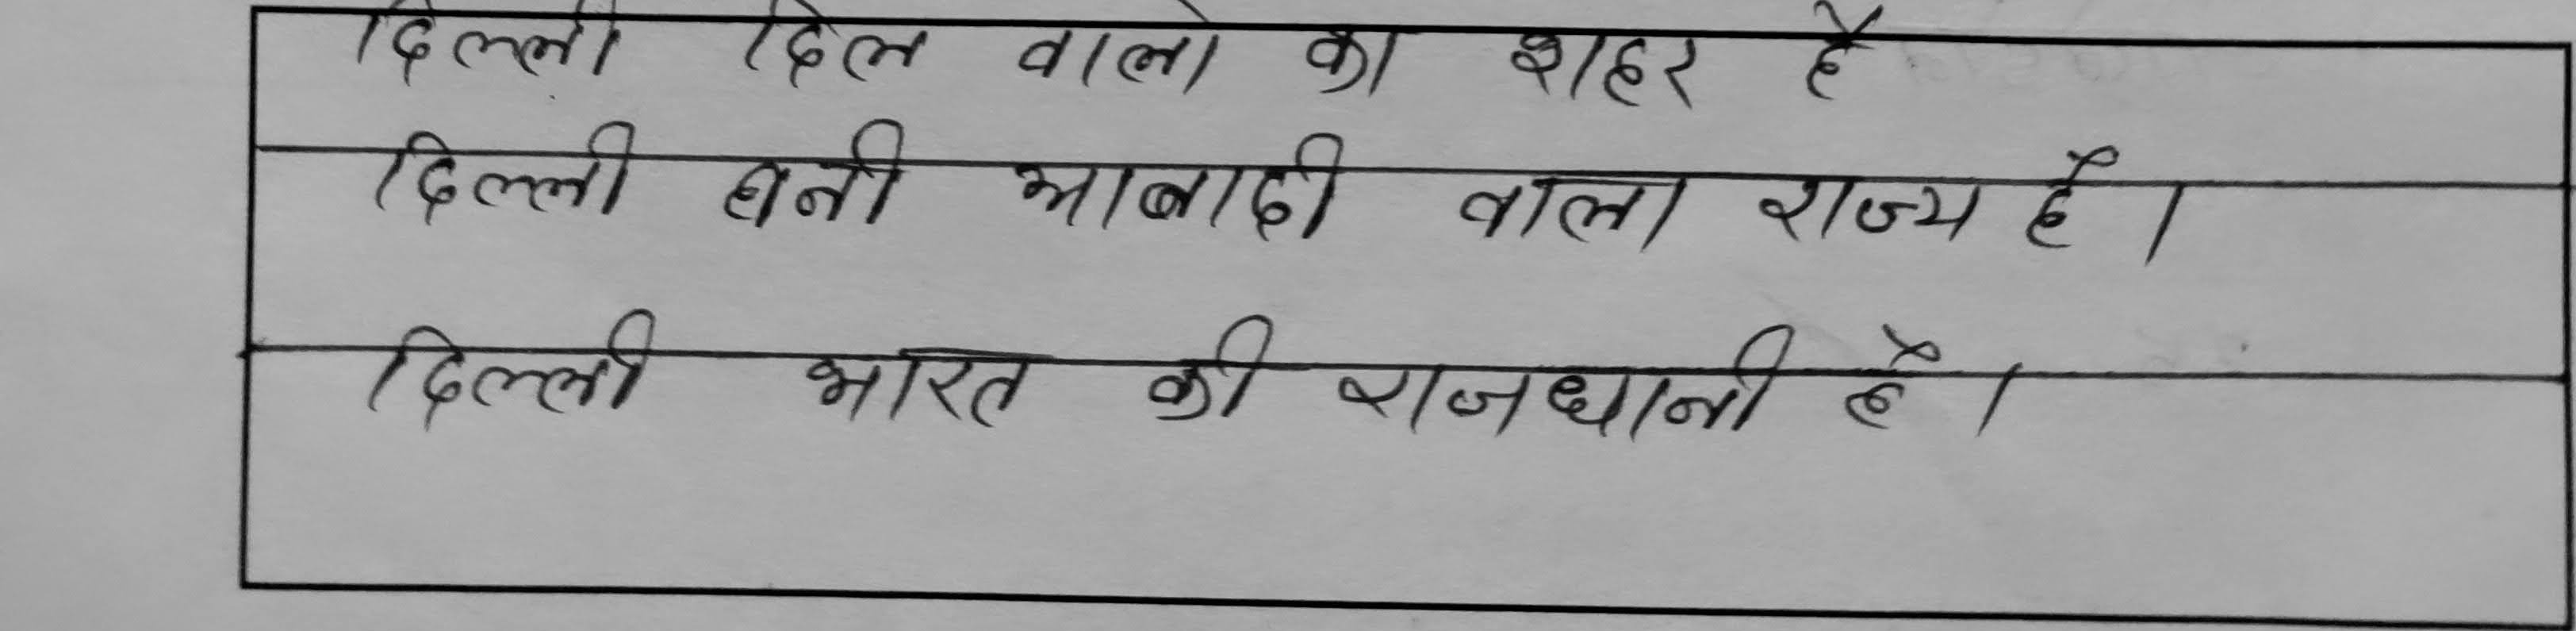 दिल्ली दिल वालो का शहर है
दिल्ली घनी आबादी वाला राज्य है।
दिल्ली भारत की राजधानी है।